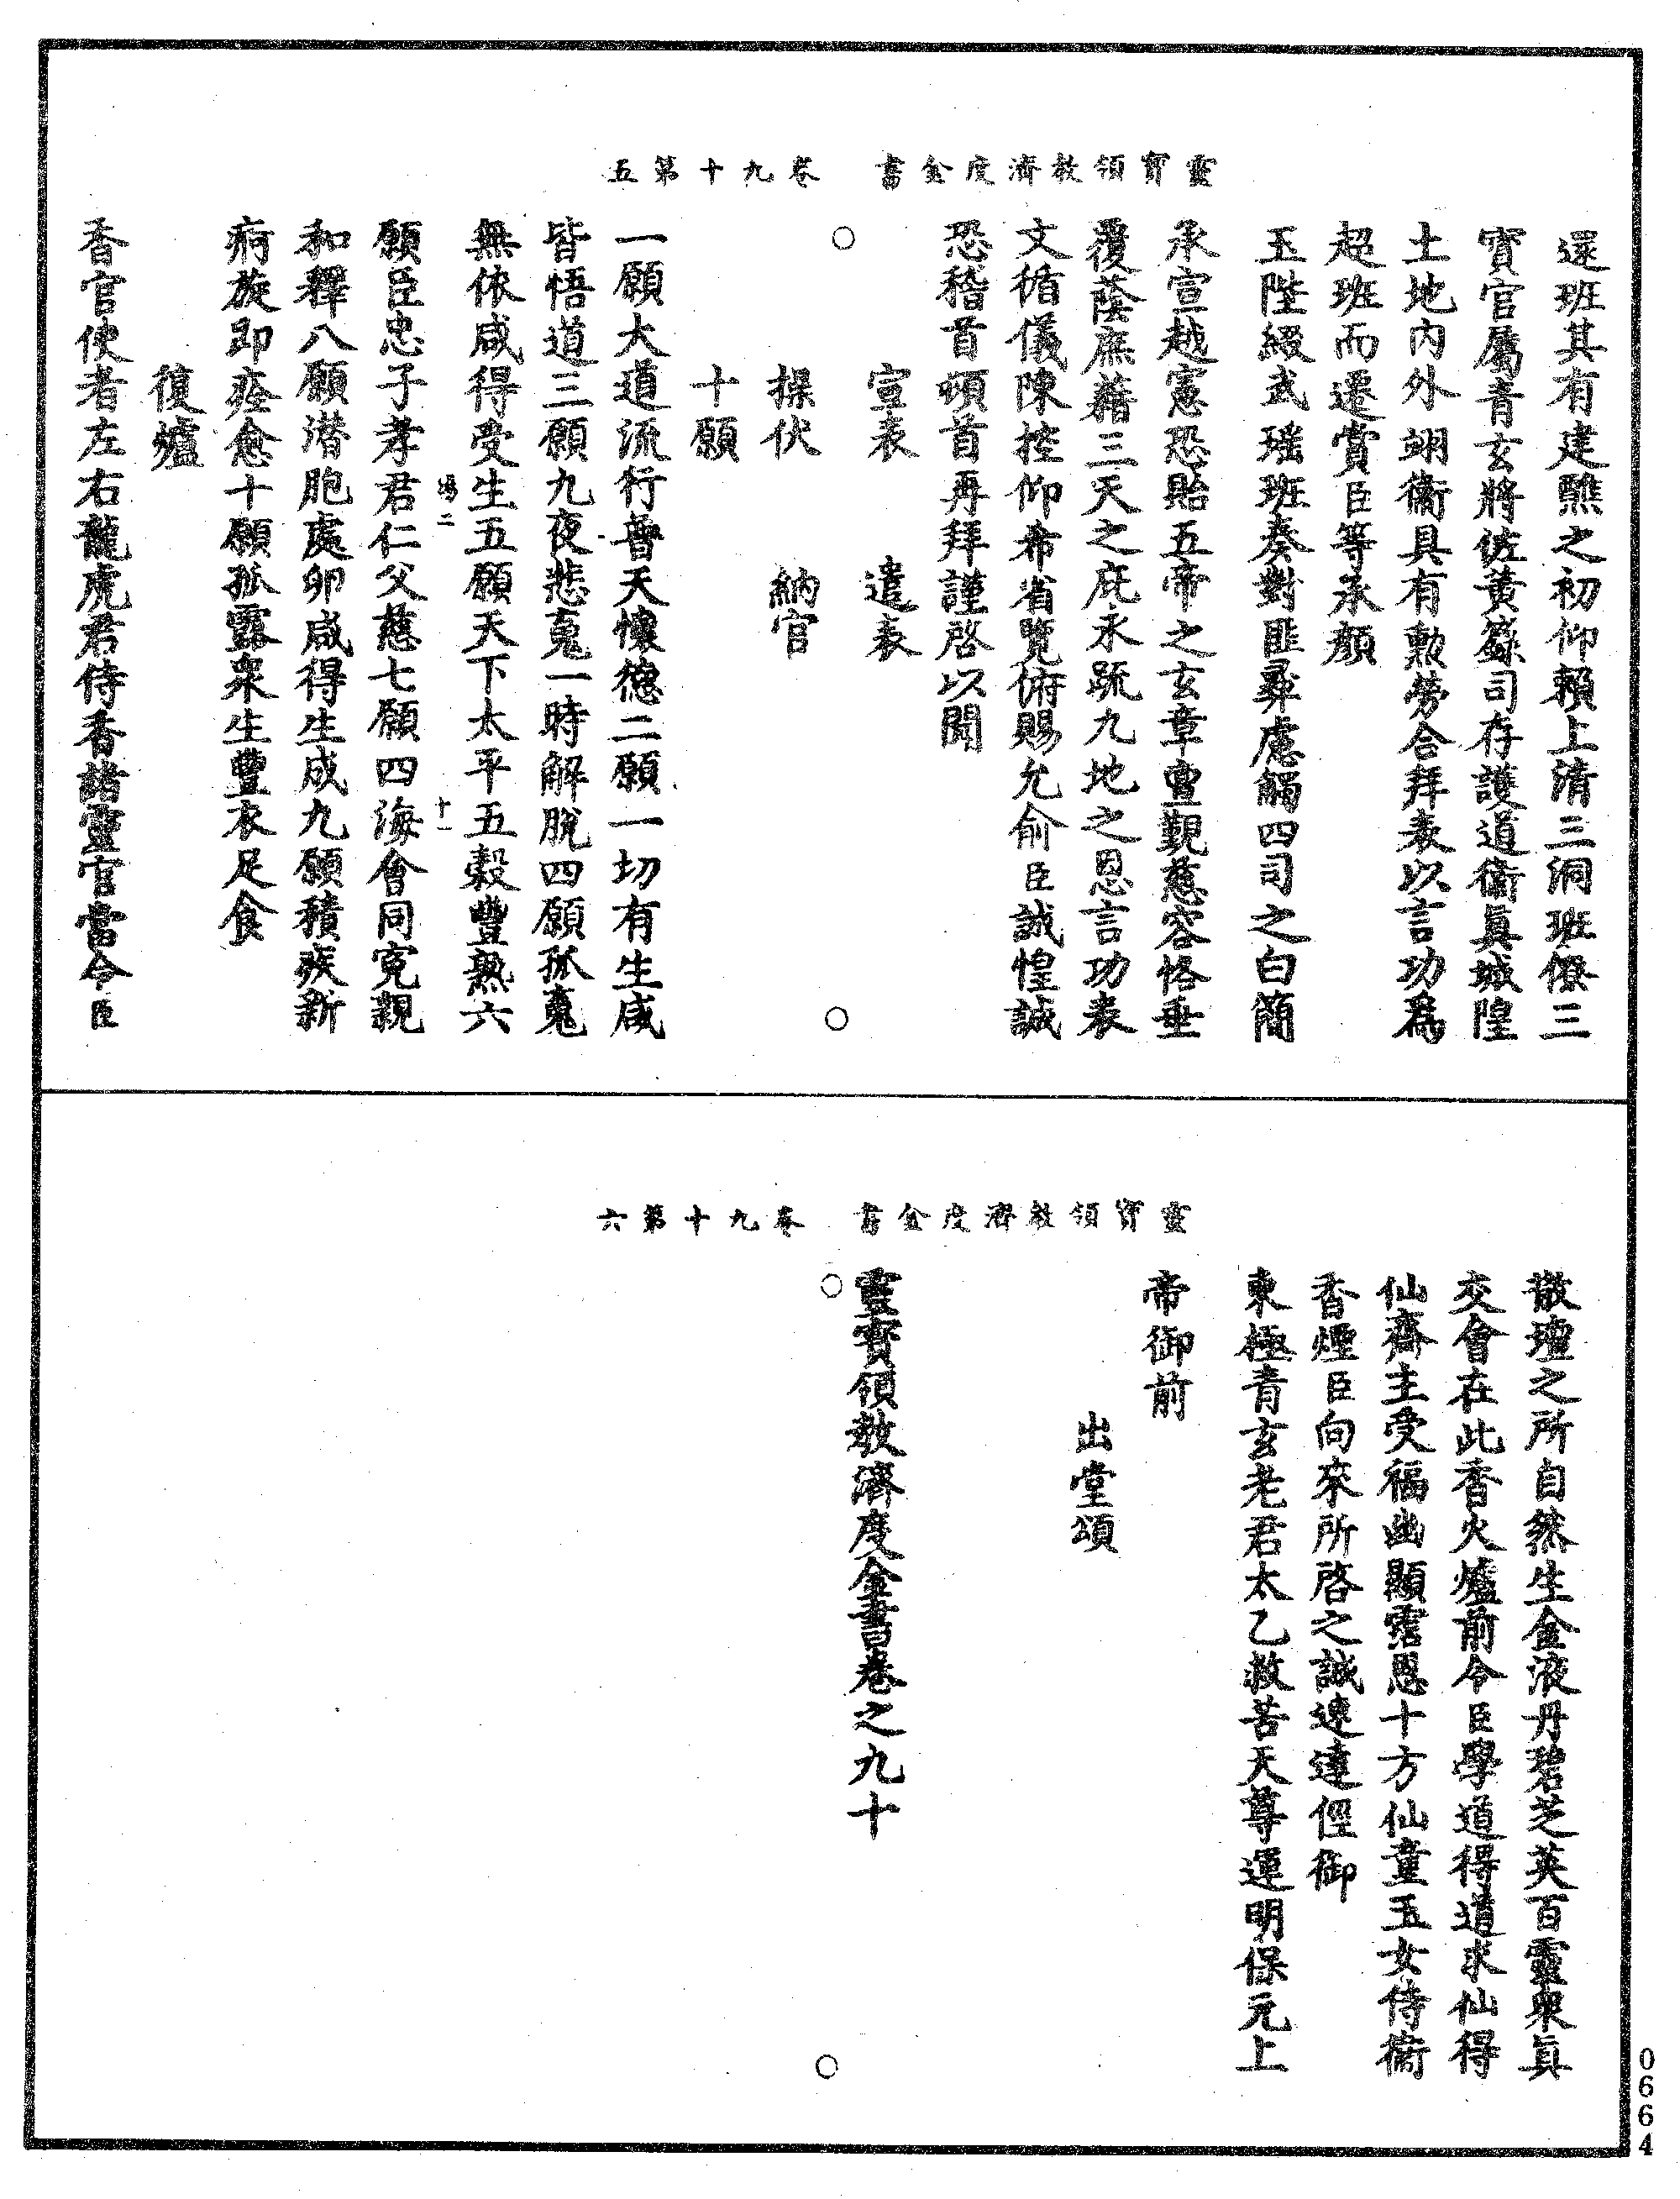 靈寶領教濟度金書　卷九十第五
還班其有建醮之初仰賴上清三洞班僚三
寶官屬青玄將佐黃籙司存護道衞眞城隍
土地內外翊衞具有勲勞合拜表以言功爲
超班而遷賞臣等承顏
玉陛綴武瑶班奏對匪彛慮觸四司之白簡
承宣越憲恐貽五帝之玄章亶覲慈容恪垂
覆蔭庶藉三天之庇永䟽九地之恩言功表
文循儀陳控仰希省覽俯賜允俞臣誠惶誠
恐稽首頓首再拜謹啓以聞
宣表　遣表
操伏　納官
十願
一願大道流行普天懷德二願一切有生咸
皆悟道三願九夜悲䰟一時解脫四願孤䰟
無依咸得受生五願天下太平五穀豐熟六
二
十一
願臣忠子孝君仁父慈七願四海會同寃親
和釋八願潜胞處卵咸得生成九願積疾新
痾旋即痊愈十願孤露衆生豐衣足食
復爐
香官使者左右龍虎君侍香諸靈官當令臣
靈寶領教濟度金書　卷九十第六
散壇之所自然生金液丹碧芝英百靈衆眞
交會在此香火爐前令臣學道得道求仙得
仙齋主受福幽顯霑恩十方仙童玉女侍衞
香煙臣向來所啓之誠速達徑御
東極青玄老君太乙救苦天尊運明保元上
帝御前
出堂頌
靈寶領教濟度金書卷之九十
0664